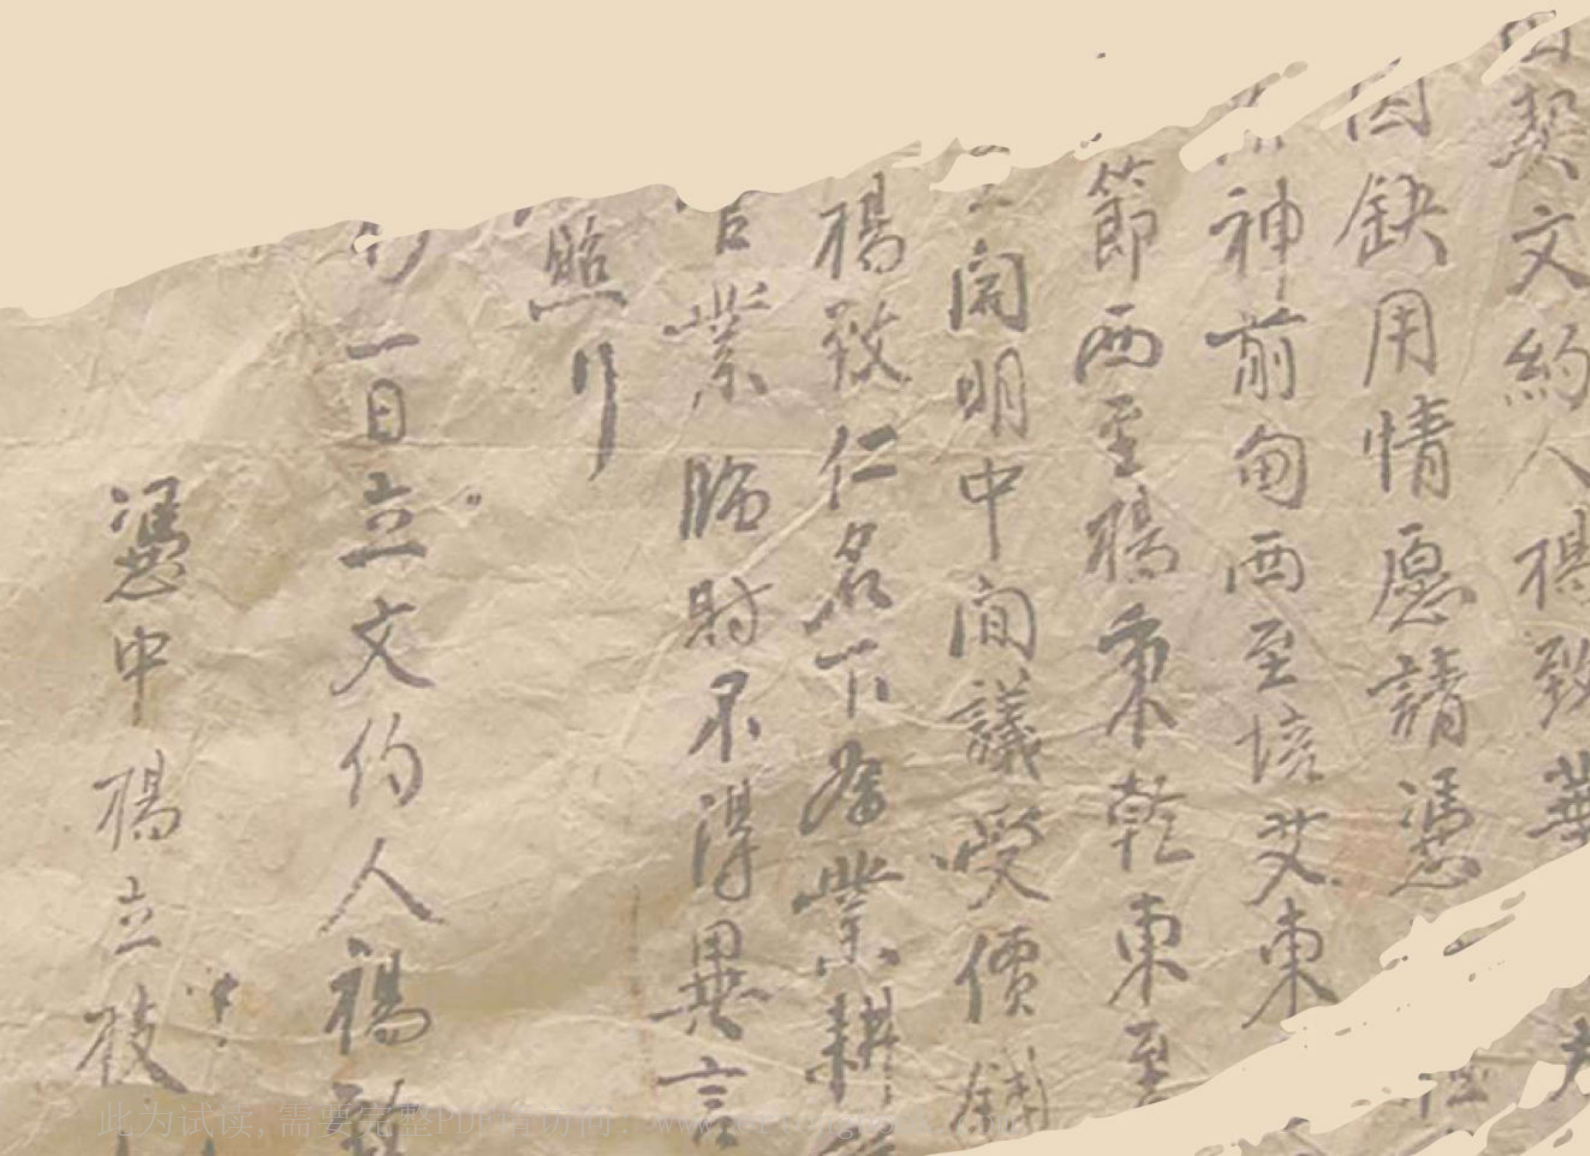 契文約人楊致華
因缺用情愿請憑
神前甸西至塝艾東
節西至楊秉乾東至
開明中間議受價錢
楊致仁名下為業耕
業臨財不得異言
照
一日立文約人楊致
憑中楊立枝
此为试读,需要完整PDF请访问: www.